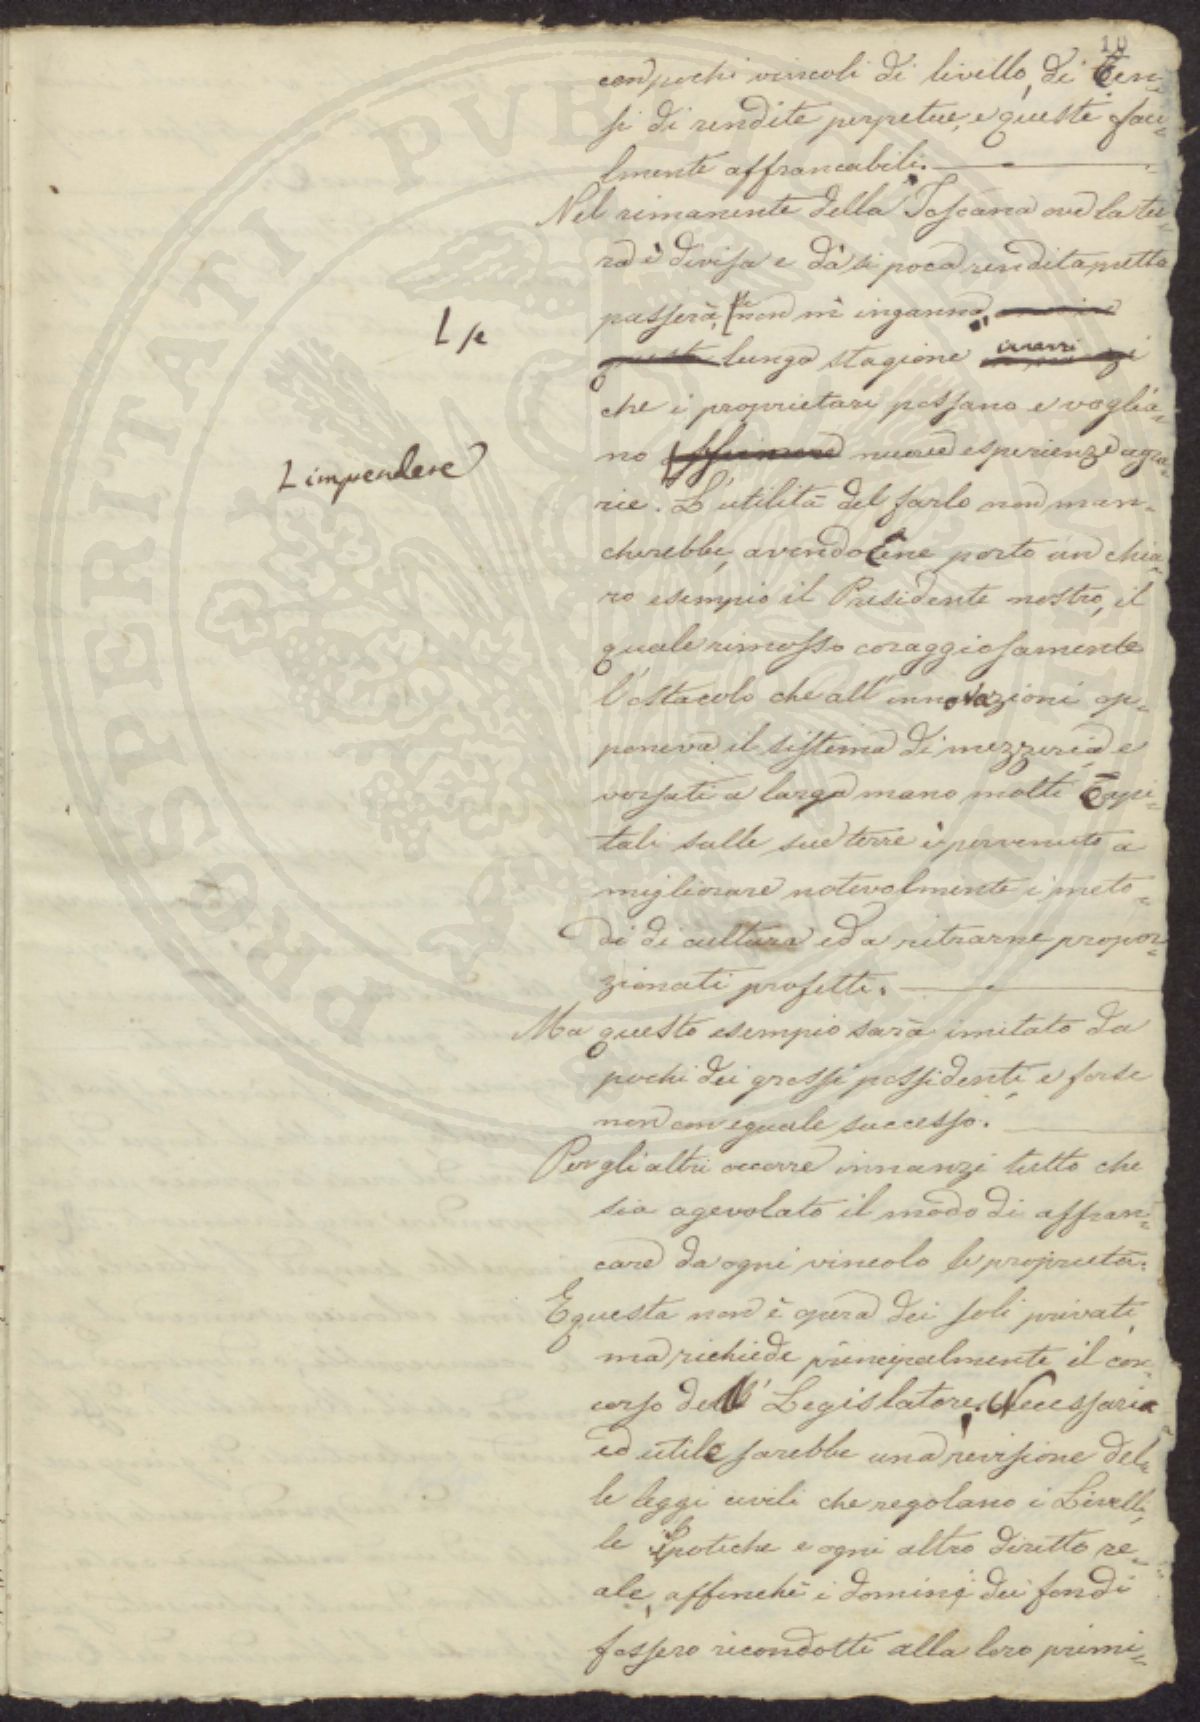 10
con pochi vincoli di livello, di Cen-
si di rendite perpetue, e queste faci-
lmente affrancabili.
Nel rimanente della Toscana ove la ter-
ra è divisa e dà sì poca rendita netta
passerà, se non m'inganno,
lunga stagione innanzi
che i proprietari possano e voglia-
no nuove esperienze agra-
rie. L'utilità del farlo non man-
cherebbe, avendocene porto un chia-
ro esempio il Presidente nostro, il
quale rimosso coraggiosamente
l'ostacolo che all'innovazioni op-
poneva il sistema di mezzeria e
versati a larga mano molti Capi-
tali sulle sue terre è pervenuto a
migliorare notevolmente i meto-
di di cultura ed a ritrarne propor-
zionati profitti.
Ma questo esempio sarà imitato da
pochi dei grossi possidenti, e forse
non con eguale successo.
Per gli altri occorre innanzi tutto che
sia agevolato il modo di affran-
care da ogni vincolo le proprietà.
E questa non è opera dei soli privati,
ma richiede principalmente il con-
corso del Legislatore. Necessaria
ed utile sarebbe una revisione del-
le leggi civili che regolano i Livelli,
le ipoteche e ogni altro diritto re-
ale, affinchè i dominj dei fondi
fossero ricondotti alla loro primi-
L se
L impendere
PROSPERITATI PVBLICAE